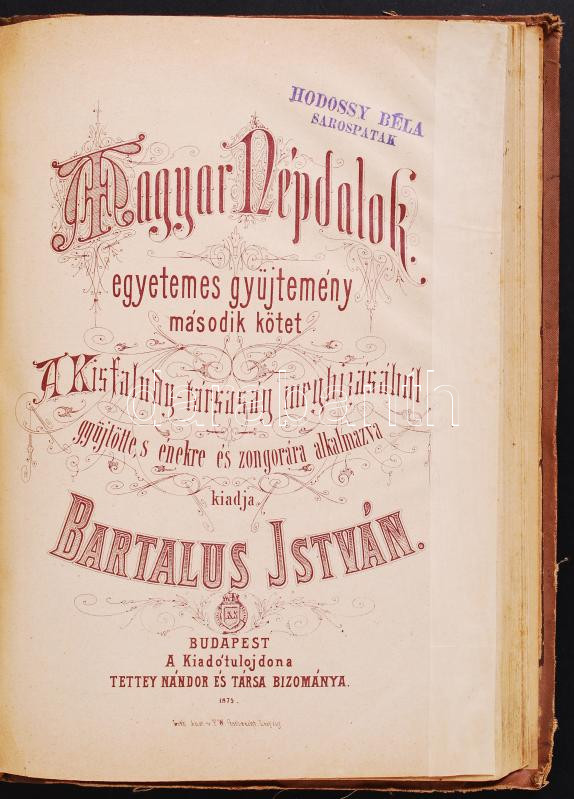 HODOSSY BÉLA
SAROSPATAK
Magyar Népdalok.
egyetemes gyüjtemény
második kötet
A Kisfaludy-társaság megbizásából
gyüjtötte, s enekre és zongorára alkalmazva
kiadja.
BARTALUS ISTVÁN.
BUDAPEST
A Kiadó tulojdona
TETTEY NÁNDOR ÉS TÁRSA BIZOMÁNYA.
1875.
Leipzig
darabanth